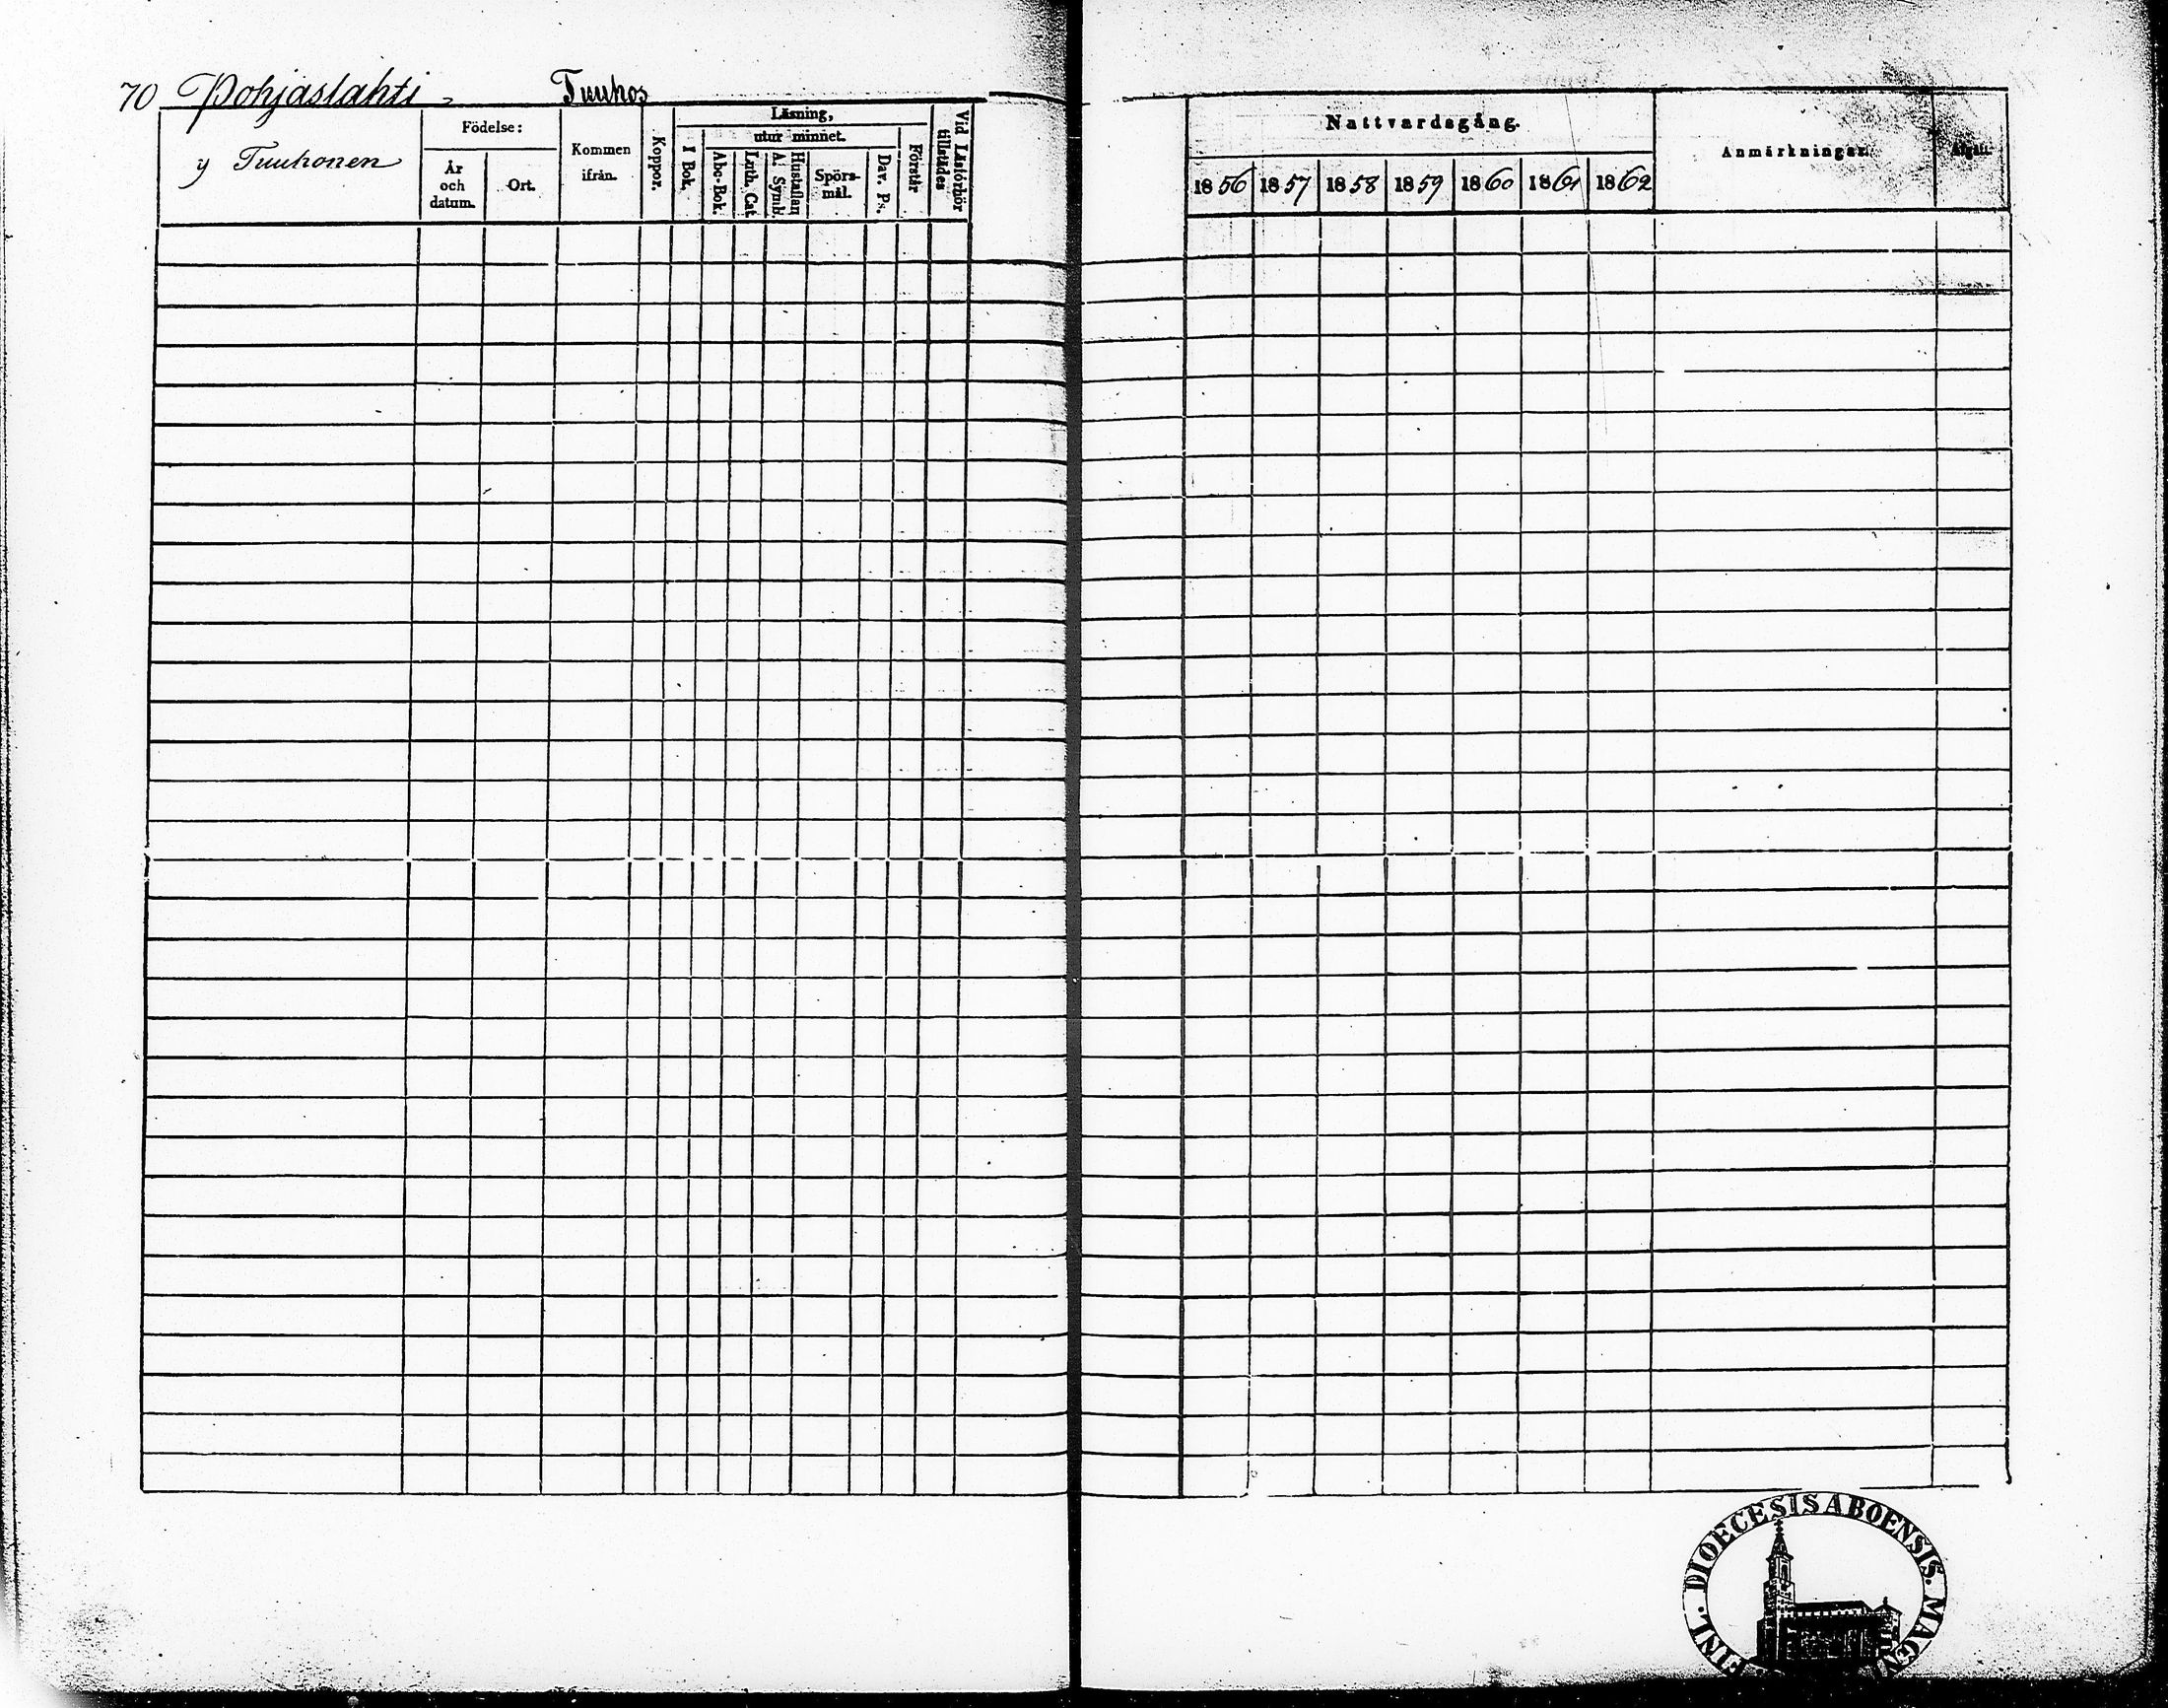 70 Pohjaslahti Tuuhos
y Tuuhonen
Födelse:
År och datum.
Ort.
Kommen ifrån.
Koppor.
Läsning,
utur minnet.
I Bok.
Abc-Bok.
Luth. Cat.
Hustaflan A. Symb.
Spörsmål.
Dav. Ps.
Förstår
Vid Läsförhör tillstädes
Nattvardsgång.
1856 1857 1858 1859 1860 1861 1862
Anmärkningar.
DIOECESIS ABOENSIS. MAGNI